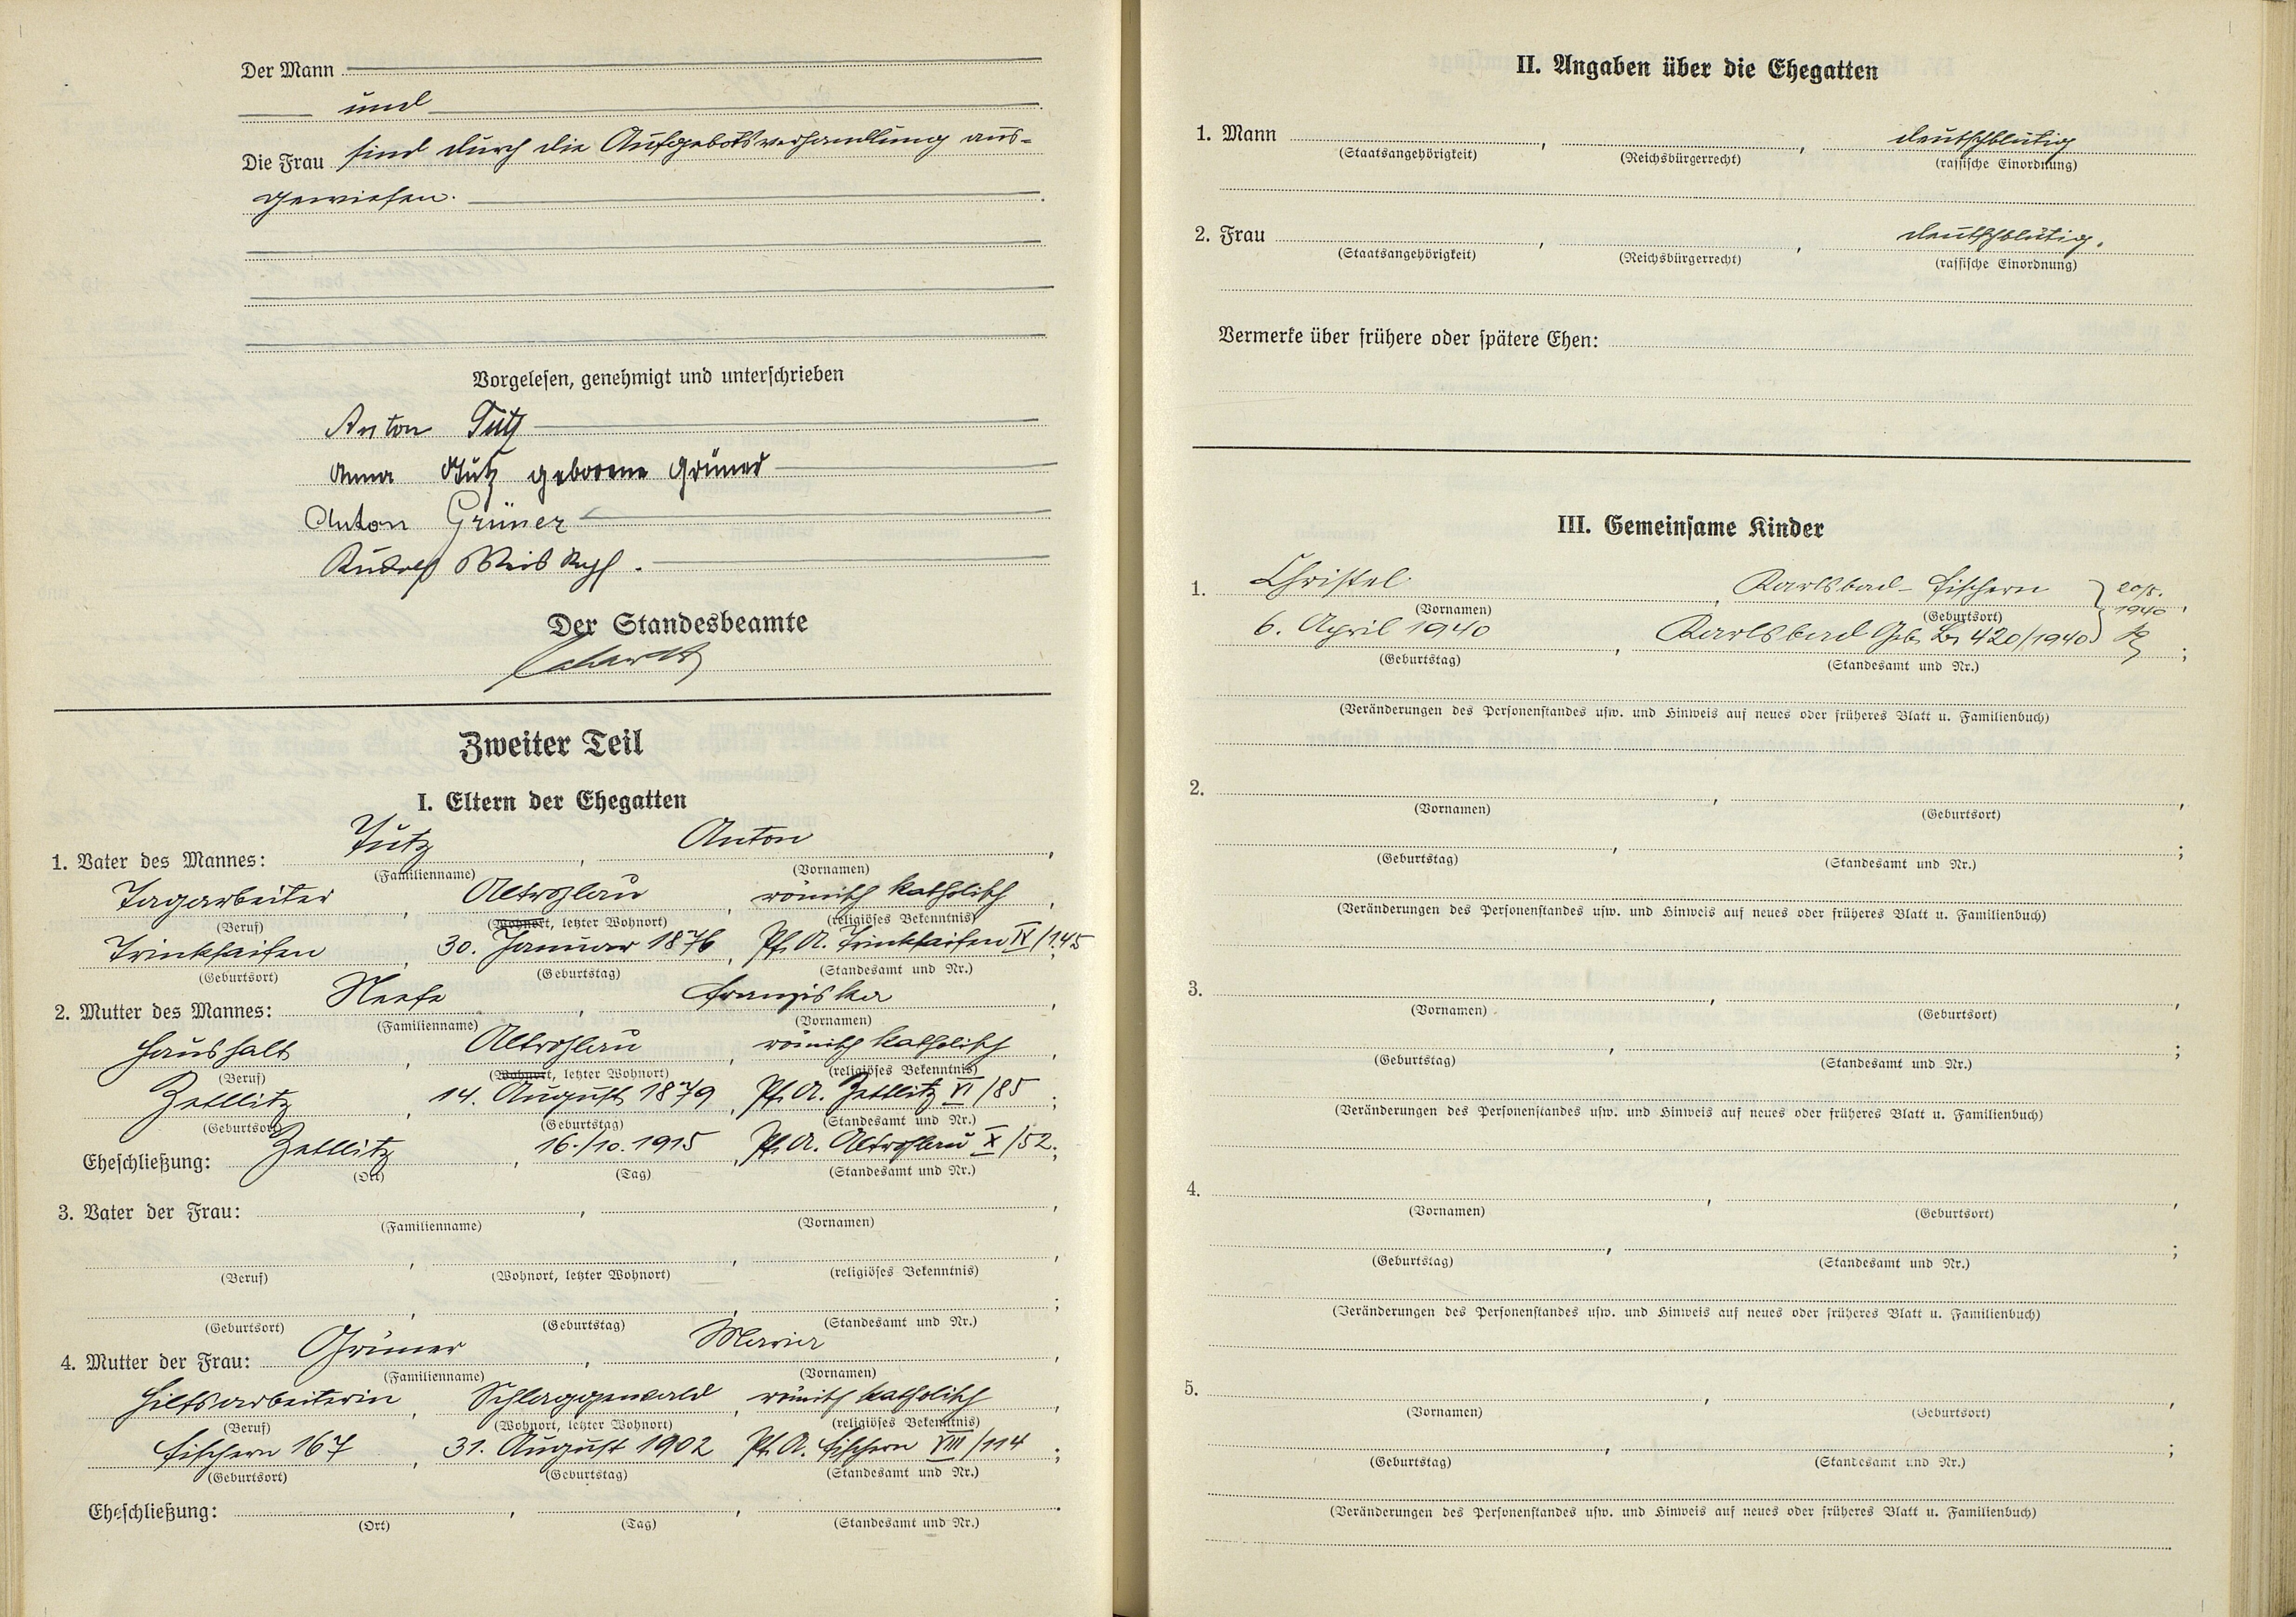 Der Mann
und
Die Frau sind durch die Aufgebotsverhandlung aus-
gewiesen.
Vorgelesen, genehmigt und unterschrieben
Anton Tütz
Anna Tütz geborene Grüner
Anton Grüner
Rudolf
Der Standesbeamte
Zweiter Teil
I. Eltern der Ehegatten
1. Vater des Mannes: Tütz, Anton,
(Familienname) (Vornamen)
Tagarbeiter, Altrohlau, römisch katholisch,
(Beruf) (Wohnort, letzter Wohnort) (religiöses Bekenntnis)
Trinkseifen, 30. Januar 1876, Pf. A. Trinkseifen IV/145;
(Geburtsort) (Geburtstag) (Standesamt und Nr.)
2. Mutter des Mannes: Neefe, Franziska,
(Familienname) (Vornamen)
Haushalt, Altrohlau, römisch katholisch,
(Beruf) (Wohnort, letzter Wohnort) (religiöses Bekenntnis)
Zettlitz, 14. August 1879, Pf. A. Zettlitz VI/85;
(Geburtsort) (Geburtstag) (Standesamt und Nr.)
Eheschließung: Zettlitz, 16./10. 1915, Pf. A. Altrohlau X/52;
(Ort) (Tag) (Standesamt und Nr.)
3. Vater der Frau: , ,
(Familienname) (Vornamen)
(Beruf) (Wohnort, letzter Wohnort) (religiöses Bekenntnis)
(Geburtsort) (Geburtstag) (Standesamt und Nr.)
4. Mutter der Frau: Grüner, Maria,
(Familienname) (Vornamen)
Hilfsarbeiterin, Schlaggenwald, römisch katholisch,
(Beruf) (Wohnort, letzter Wohnort) (religiöses Bekenntnis)
Fischern 167, 31. August 1902 Pf. A. Fischern VIII/114;
(Geburtsort) (Geburtstag) (Standesamt und Nr.)
Eheschließung: , , .
(Ort) (Tag) (Standesamt und Nr.)
II. Angaben über die Ehegatten
1. Mann , , deutschblütig
(Staatsangehörigkeit) (Reichsbürgerrecht) (rassische Einordnung)
2. Frau , , deutschblütig.
(Staatsangehörigkeit) (Reichsbürgerrecht) (rassische Einordnung)
Vermerke über frühere oder spätere Ehen:
III. Gemeinsame Kinder
1. Christel, Karlsbad-Fischern } 20/5. 1940
(Vornamen) (Geburtsort)
6. April 1940, Karlsbad Geb. 420/1940;
(Geburtstag) (Standesamt und Nr.)
(Veränderungen des Personenstandes usw. und Hinweis auf neues oder früheres Blatt u. Familienbuch)
2. , ,
(Vornamen) (Geburtsort)
(Geburtstag) (Standesamt und Nr.)
(Veränderungen des Personenstandes usw. und Hinweis auf neues oder früheres Blatt u. Familienbuch)
3. , ,
(Vornamen) (Geburtsort)
(Geburtstag) (Standesamt und Nr.)
(Veränderungen des Personenstandes usw. und Hinweis auf neues oder früheres Blatt u. Familienbuch)
4. , ,
(Vornamen) (Geburtsort)
(Geburtstag) (Standesamt und Nr.)
(Veränderungen des Personenstandes usw. und Hinweis auf neues oder früheres Blatt u. Familienbuch)
5. , ,
(Vornamen) (Geburtsort)
(Geburtstag) (Standesamt und Nr.)
(Veränderungen des Personenstandes usw. und Hinweis auf neues oder früheres Blatt u. Familienbuch)